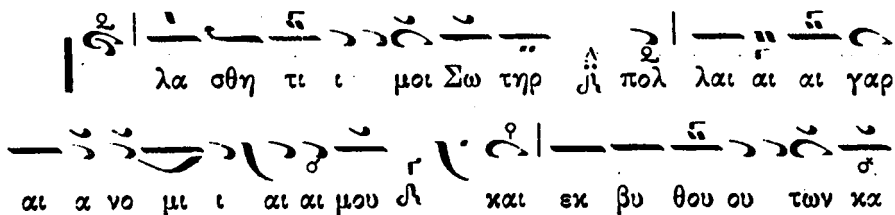 λα σθη τι ι μοι Σω τηρ πολ λαι αι αι γαρ
αι α νο μι ι αι αι μου και εκ βυ θου ου των κα